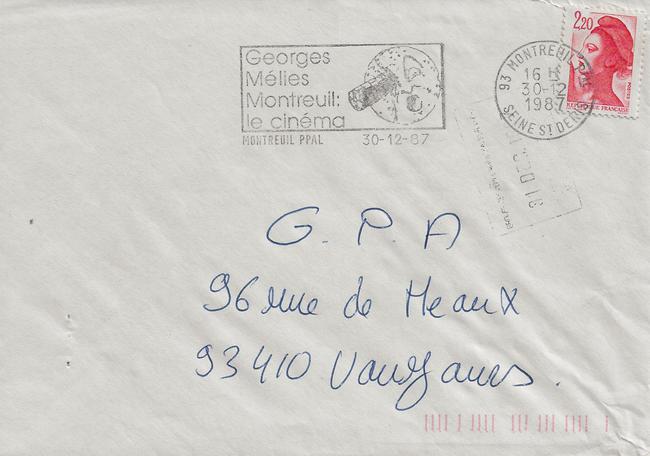 Georges
Mélies
Montreuil:
le cinéma
MONTREUIL PPAL 30-12-87
93 MONTREUIL PPAL
16 H
30-12
1987
SEINE ST DENIS
2,20
REPUBLIQUE FRANÇAISE
POSTES
31 DEC
G. P. A
96 rue de Meaux
93410 Vaujours.